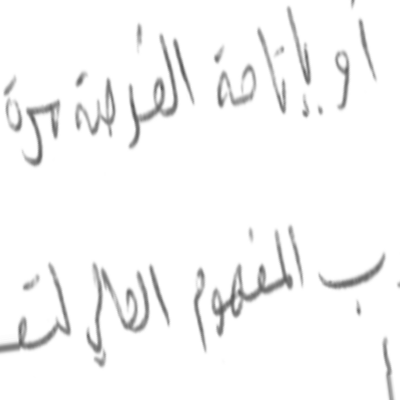 أو بإتاحة الفرصة مرة
ب المفهوم الحالي لتعـ